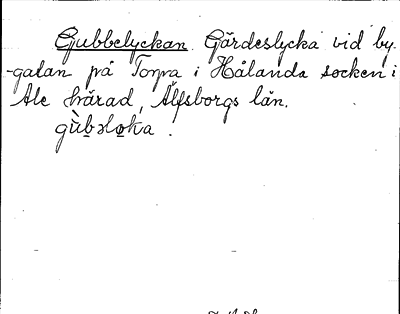 Gubbelyckan. Gärdeslycka vid by-
-gatan på Torpa i Hålanda socken i
Ale härad, Älfsborgs län.
gùbəloka.